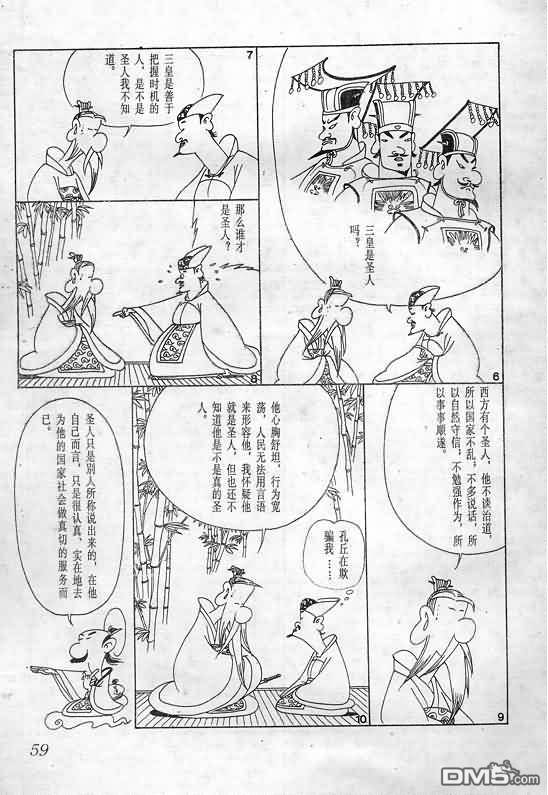 三皇是圣人
吗？
6
三皇是善于
把握时机的
人，是不是
圣人我不知
道。
7
那么谁才
是圣人？
8
西方有个圣人，他不谈治道，
所以国家不乱，不多说话，所
以自然守信，不勉强作为，所
以事事顺遂。
9
孔丘在欺
骗我……
他心胸舒坦，行为宽
荡，人民无法用言语
来形容他，我怀疑他
就是圣人，但也还不
知道他是不是真的圣
人。
10
圣人只是别人所称说出来的，在他
自己而言，只是很认真，实在地去
为他的国家社会做真切的服务而
已。
59
漫画吧
DM5.com